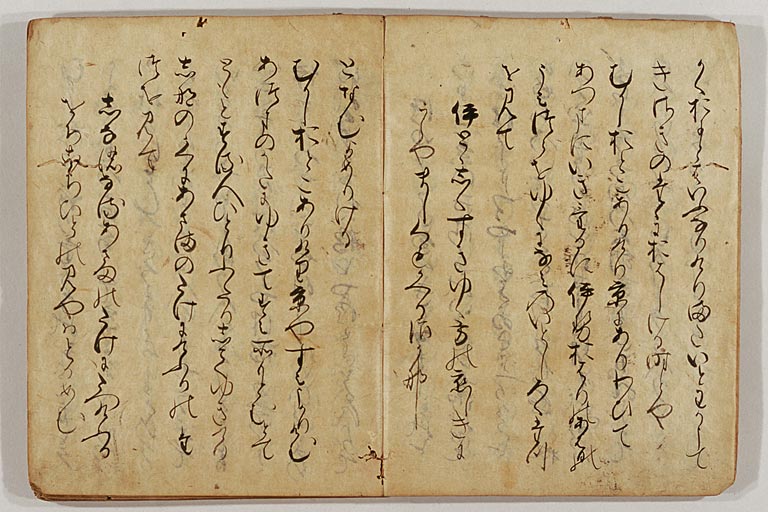 かくおにとはいふなりけりまたいとわかうて
きさきのたゝにおはしける時とや
むかしおとこありけり京にありわひて
あつまにいきけるに伊勢おはりのあはひの
うみつらをゆくになみのいとしろくたつ
を見て
伊とゝしくすきゆく方の恋しきに
うらやましくもかへるなみかな
となむよめりける
むかしおとこありけり京やすみうかりけむ
あつまのかたにゆきてすみ所もとむとて
ともとする人ひとりふたりしてゆきけり
しなのゝくにあさまのたけにけふりのた
つを見て
しなのなるあさまのたけにたつけふり
をちこちひとの見やはとかめぬ